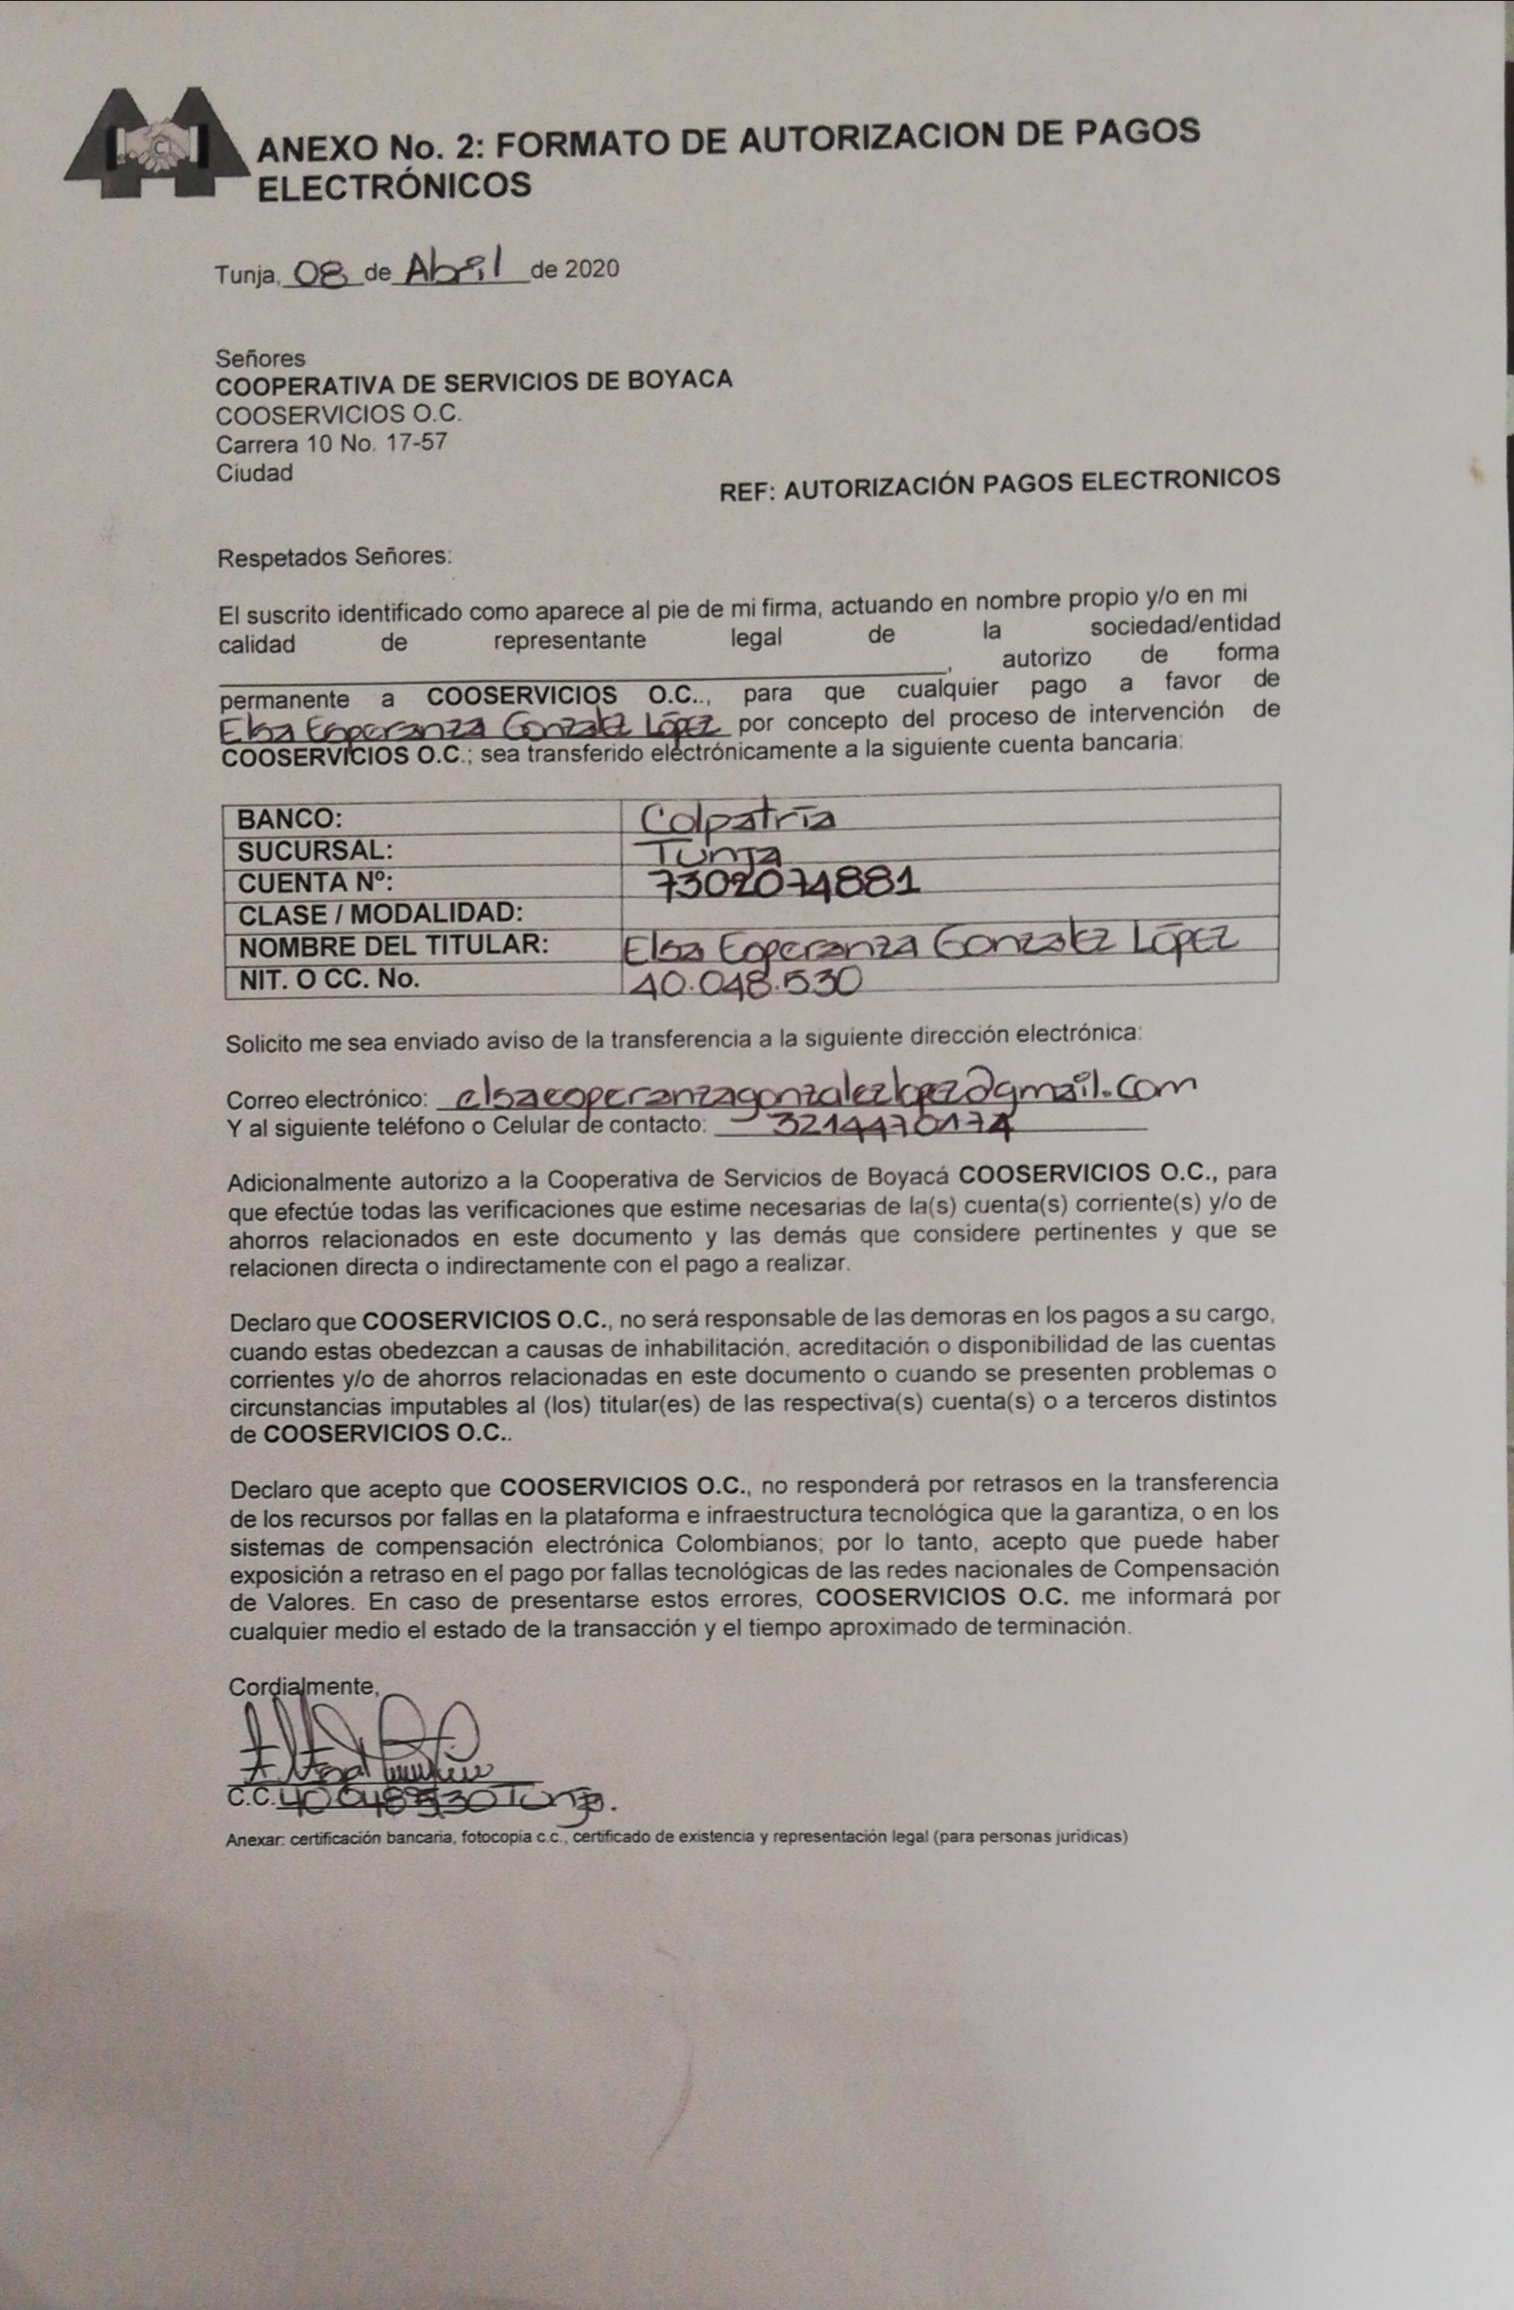 ANEXO No. 2: FORMATO DE AUTORIZACION DE PAGOS
ELECTRÓNICOS
Tunja, 08 de Abril de 2020
Señores
COOPERATIVA DE SERVICIOS DE BOYACA
COOSERVICIOS O.C.
Carrera 10 No. 17-57
Ciudad
REF: AUTORIZACIÓN PAGOS ELECTRONICOS
Respetados Señores:
El suscrito identificado como aparece al pie de mi firma, actuando en nombre propio y/o en mi
calidad de representante legal de la sociedad/entidad
, autorizo de forma
permanente a COOSERVICIOS O.C.., para que cualquier pago a favor de
Elsa Esperanza Gonzalez López por concepto del proceso de intervención de
COOSERVICIOS O.C.; sea transferido electrónicamente a la siguiente cuenta bancaria:
BANCO: Colpatria
SUCURSAL: Tunja
CUENTA Nº: 7302074881
CLASE / MODALIDAD:
NOMBRE DEL TITULAR: Elsa Esperanza Gonzalez López
NIT. O CC. No. 40.048.530
Solicito me sea enviado aviso de la transferencia a la siguiente dirección electrónica:
Correo electrónico: elsaesperanzagonzalezlopez@gmail.com
Y al siguiente teléfono o Celular de contacto: 3214470174
Adicionalmente autorizo a la Cooperativa de Servicios de Boyacá COOSERVICIOS O.C., para
que efectúe todas las verificaciones que estime necesarias de la(s) cuenta(s) corriente(s) y/o de
ahorros relacionados en este documento y las demás que considere pertinentes y que se
relacionen directa o indirectamente con el pago a realizar.
Declaro que COOSERVICIOS O.C., no será responsable de las demoras en los pagos a su cargo,
cuando estas obedezcan a causas de inhabilitación, acreditación o disponibilidad de las cuentas
corrientes y/o de ahorros relacionadas en este documento o cuando se presenten problemas o
circunstancias imputables al (los) titular(es) de las respectiva(s) cuenta(s) o a terceros distintos
de COOSERVICIOS O.C..
Declaro que acepto que COOSERVICIOS O.C., no responderá por retrasos en la transferencia
de los recursos por fallas en la plataforma e infraestructura tecnológica que la garantiza, o en los
sistemas de compensación electrónica Colombianos; por lo tanto, acepto que puede haber
exposición a retraso en el pago por fallas tecnológicas de las redes nacionales de Compensación
de Valores. En caso de presentarse estos errores, COOSERVICIOS O.C. me informará por
cualquier medio el estado de la transacción y el tiempo aproximado de terminación.
Cordialmente,
C.C. 40048530 Tunja.
Anexar: certificación bancaria, fotocopia c.c., certificado de existencia y representación legal (para personas jurídicas)